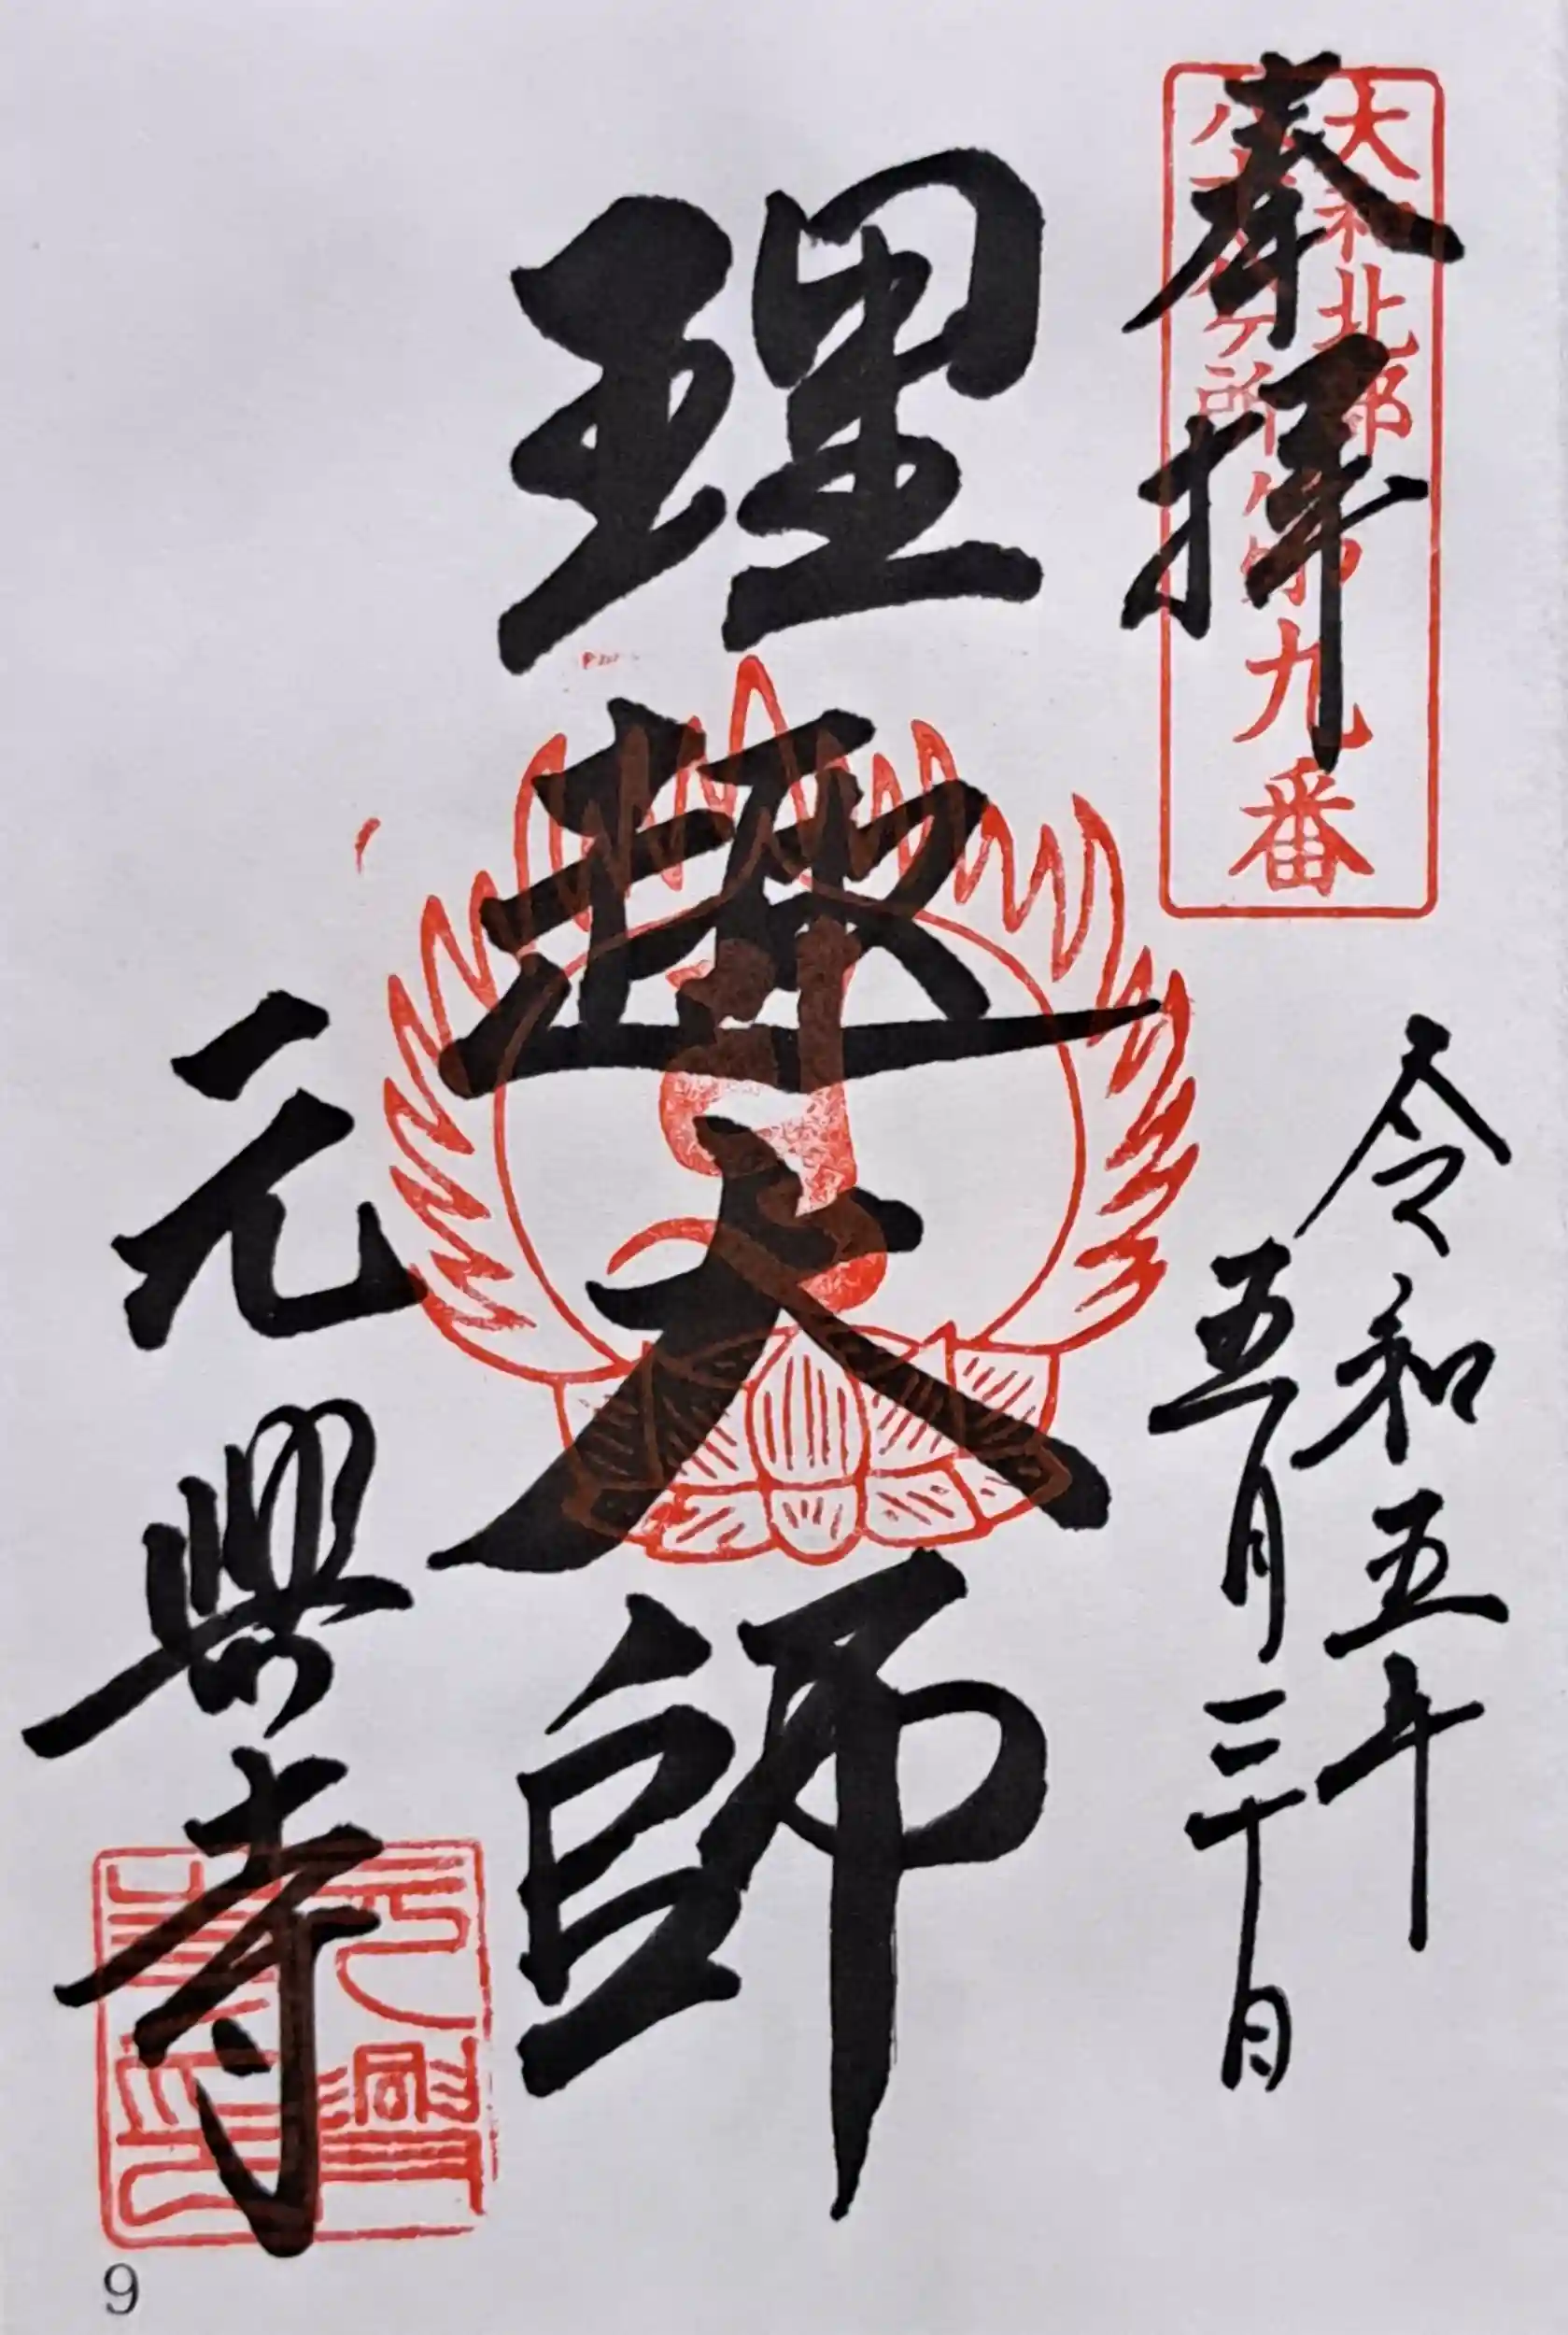 奉拝
大和北部
八十八ヶ所第九番
令和五年
五月三十日
理趣大師
元興寺
元興寺印
9